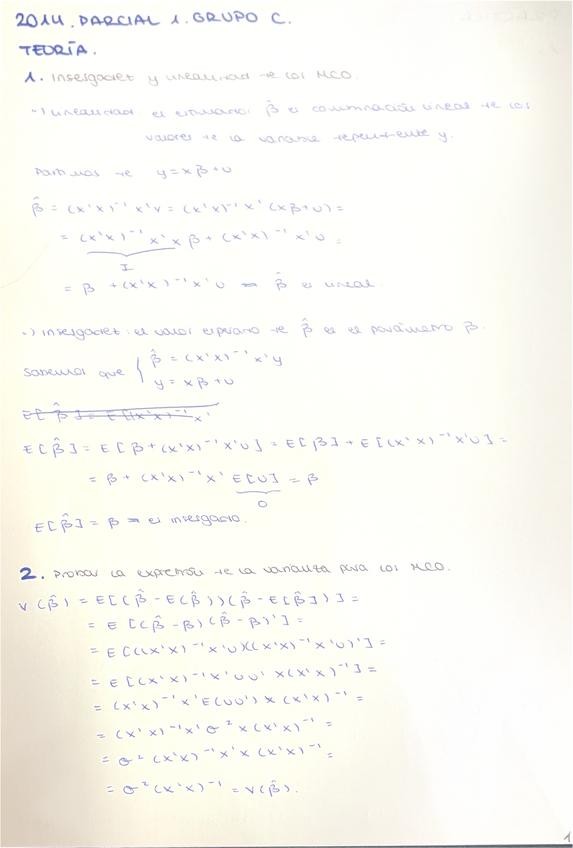 2014. PARCIAL 1. GRUPO C.
TEORÍA.
1. Insesgadez y linealidad de los MCO.
·) Linealidad: el estimador β̂ es combinación lineal de los
valores de la variable dependiente y.
Partimos de y = xβ + u
β̂ = (x'x)⁻¹ x'y = (x'x)⁻¹ x' (xβ+u) =
= (x'x)⁻¹ x'x β + (x'x)⁻¹ x'u =
I
= β + (x'x)⁻¹ x'u ⇒ β̂ es lineal.
·) Insesgadez: el valor esperado de β̂ es el parámetro β.
Sabemos que { β̂ = (x'x)⁻¹ x'y
y = xβ + u
E[β̂] = E[(x'x)⁻¹ x'
E[β̂] = E[β + (x'x)⁻¹ x'u] = E[β] + E[(x'x)⁻¹ x'u] =
= β + (x'x)⁻¹ x' E[u] = β
0
E[β̂] = β ⇒ es insesgado.
2. Probar la expresión de la varianza para los MCO.
V(β̂) = E[(β̂ - E(β̂))(β̂ - E[β̂])] =
= E[(β̂ - β)(β̂ - β)'] =
= E[((x'x)⁻¹ x'u)((x'x)⁻¹ x'u)'] =
= E[(x'x)⁻¹ x'uu' x(x'x)⁻¹] =
= (x'x)⁻¹ x' E(uu') x (x'x)⁻¹ =
= (x'x)⁻¹ x' σ² x (x'x)⁻¹ =
= σ² (x'x)⁻¹ x'x (x'x)⁻¹ =
= σ² (x'x)⁻¹ = V(β̂).
1